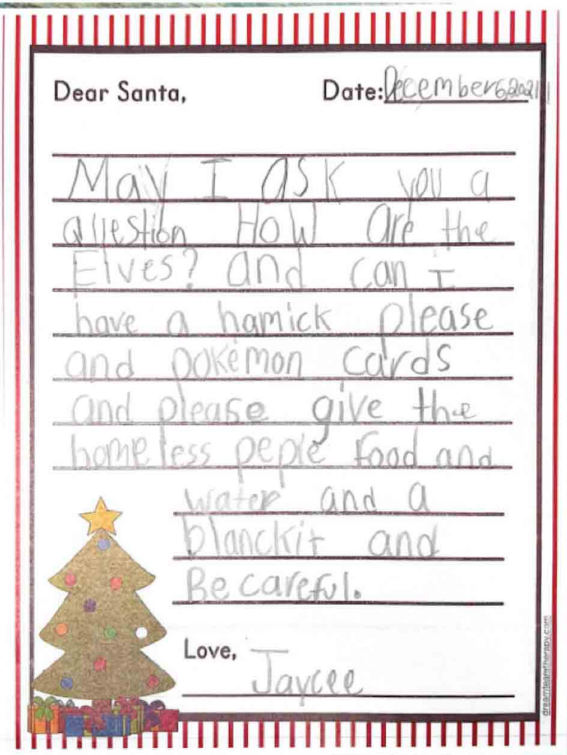 Dear Santa, Date: December 6, 2021
May I ask you a
question How are the
Elves? and can I
have a hamick please
and pokemon cards
and please give the
homeless peple food and
water and a
blanckit and
Be careful.
Love, Jaycee
dreamteamtherapy.com